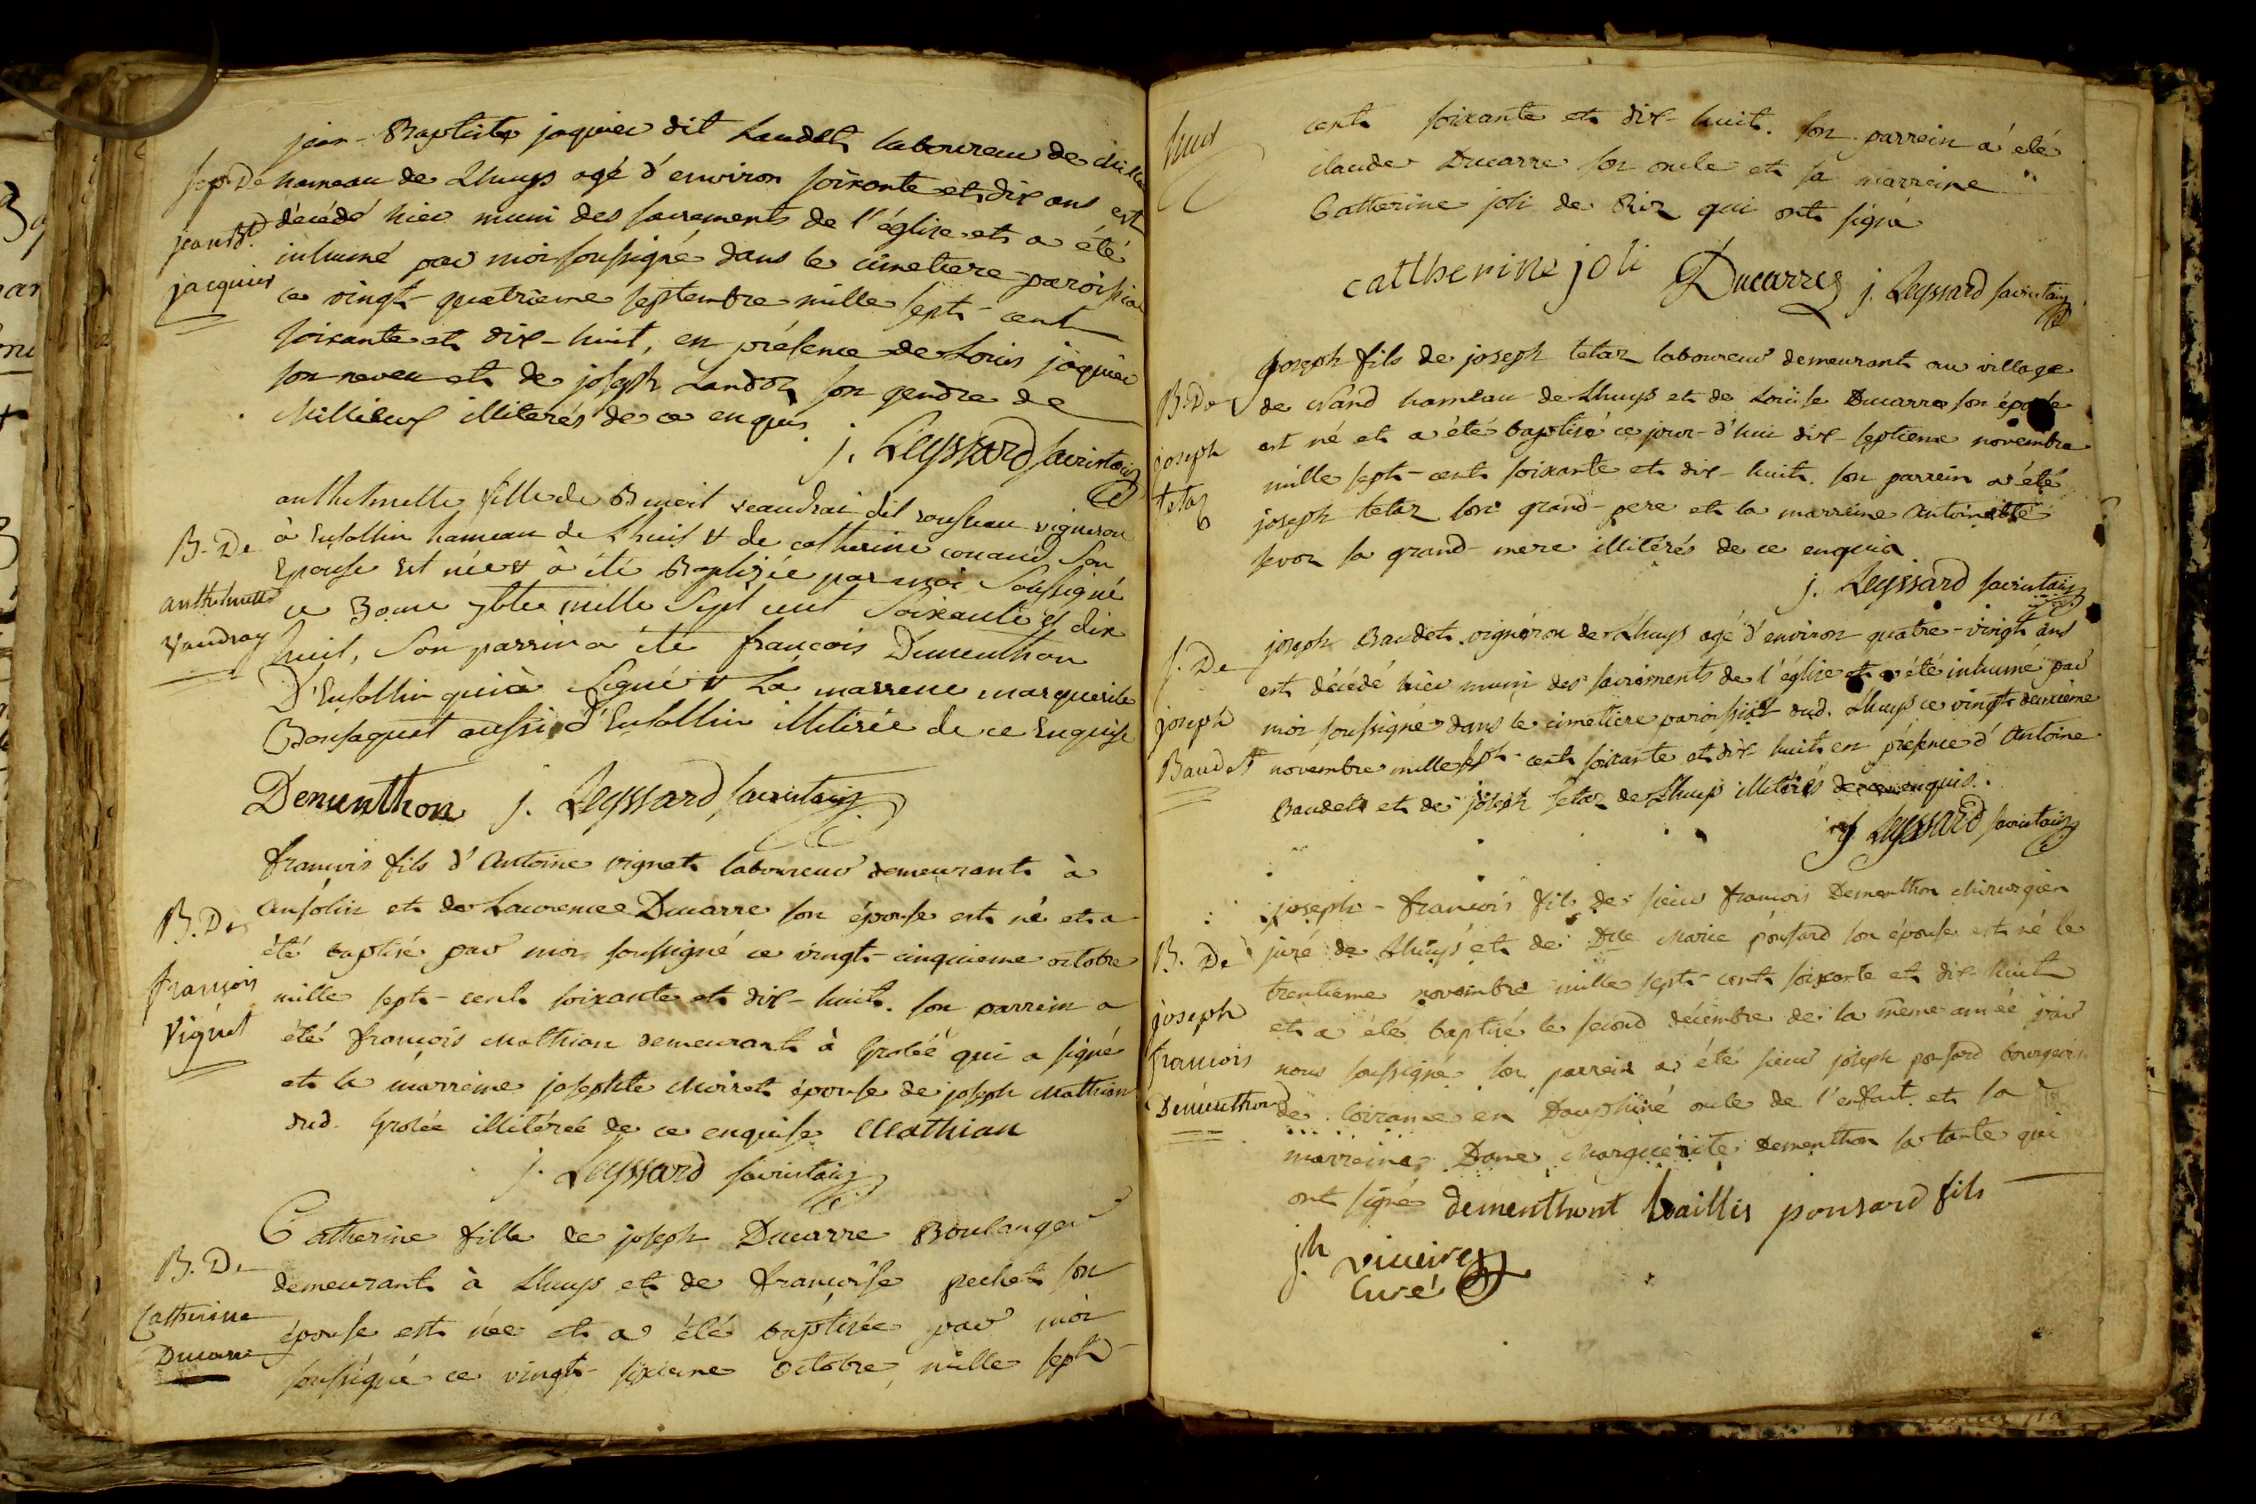 jean-Baptiste jaquier dit Landet laboureur de
Sep. De hameau de Lhuys agé d'environ soixante et dix ans est
jean Bt. décédé hier muni des sacrements de l'église et a été
jacquier inhumé par moi soussigné dans le cimetiere paroissial
ce vingt-quatrieme septembre mille sept-cent
soixante et dix-huit, en présence de Louis jaquier
son neveu et de joseph Landoz son gendre de
Millieux illiterés de ce enquis.
j. Leyssard sacristain
anthelmette fille de Benoit veaudrai dit rousseau vigneron
B. De à Ensollin hameau de Lhuis et de catherine couand son
anthelmette Epouse Est née et à été Baptizée par moi Soussigné
vaudray ce 7bre mille Sept cent Soixante et dix
huit, Son parrin a été françois Dementhon
D'Ensollin qui à Signé et La marrene marguerite
Bonsaquet aussi d'Ensollin illiterée de ce Enquise
Demunthon j. Leyssard sacristain
françois fils d'Antoine vignet laboureur demeurant à
B. De ansolin et de Laurence Ducarre son épouse est né et a
été baptisé par moi soussigné ce vingt-cinquieme octobre
françois mille sept-cent soixante et dix-huit. son parrein a
Vignet été françois Mathian demeurant à Groléé qui a signé
et la marreine josephte Moiret épouse de joseph Mathian
dud. Grolée illitérée de ce enquise Mathian
j. Leyssard sacristain
Catherine fille de joseph Ducarre Boulanger
B. De demeurant à Lhuys et de françoise pechet son
Catherine épouse est née et a été baptisée par moi
Ducarre soussigné ce vingt-sixieme octobre mille sept-
cent soixante et dix-huit. son parrein a été
claude Ducarre son oncle et sa marreine
Catherine joli de Rix qui ont signé
cattherine joli Ducarre j. Leyssard sacristain
joseph fils de joseph tetaz laboureur demeurant au village
B. De de crand hameau de Lhuys et de Louise Ducarre son épouse
joseph est né et a été baptisé ce jour-d'hui dix-septieme novembre
tetaz mille sept-cent soixante et dix-huit. son parrein a été
joseph tetaz son grand-pere et la marreine Antoinette
sevoz sa grand-mere illitérés de ce enquis
j. Leyssard sacristain
joseph Baudet vigneron de Lhuys agé d'environ quatre-vingt ans
S. De est décédé hier muni des sacrements de l'église et a été inhumé par
joseph moi soussigné dans le cimetiere paroissial dud. Lhuys ce vingt deuxieme
Baudet novembre mille sept-cent soixante et dix huit en présence d'Antoine
Baudet et de joseph tetaz de Lhuys illitérés de ce enquis.
j Leyssard sacristain
joseph-françois fils de sieur françois Dementhon chirurgien
B. De juré de Lhuys et de Dlle Marie ponsard son épouse est né le
trentieme novembre mille sept-cent soixante et dix-huit
joseph et a été baptisé le second décembre de la même année par
francois nous soussigné son parrein a été sieur joseph ponsard bourgeois
Dementhon de en Dauphiné oncle de l'enfant et la
marreine Dame Marguerite Dementhon sa tante qui
ont signé dementhont baillis ponsard fils
jh
Curé